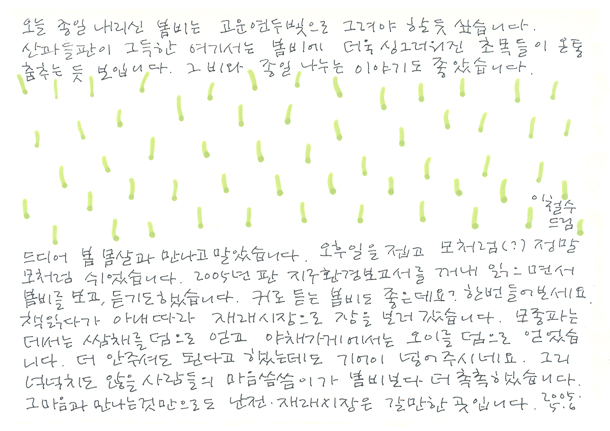 오늘 종일 내리신 봄비는 고운연두빛으로 그려야 할듯 싶습니다.
산과들판이 그득한 여기서는 봄비에 더욱 싱그러워진 초목들이 온통
춤추는 듯 보입니다. 그 비와 종일 나누는 이야기도 좋았습니다.
이철수
드림
드디어 봄 몸살과 만나고 말았습니다. 오후일을 접고 모처럼(?) 정말
모처럼 쉬었습니다. 2005년 판 지구환경보고서를 꺼내 읽으면서
봄비를 보고, 듣기도했습니다. 귀로 듣는 봄비도 좋은데요? 한번들어보세요.
책읽다가 아내따라 재래시장으로 장을 보러 갔습니다. 모종파는
데서는 쌈채를 덤으로 얻고 야채가게에서는 오이를 덤으로 얻었습
니다. 더 안주셔도 된다고 했는데도 기어이 넣어주시네요. 그리
넉넉치도 않을 사람들의 마음씀씀이가 봄비보다 더 촉촉했습니다.
그마음과 만나는것만으로도 난전·재래시장은 갈만한 곳입니다.